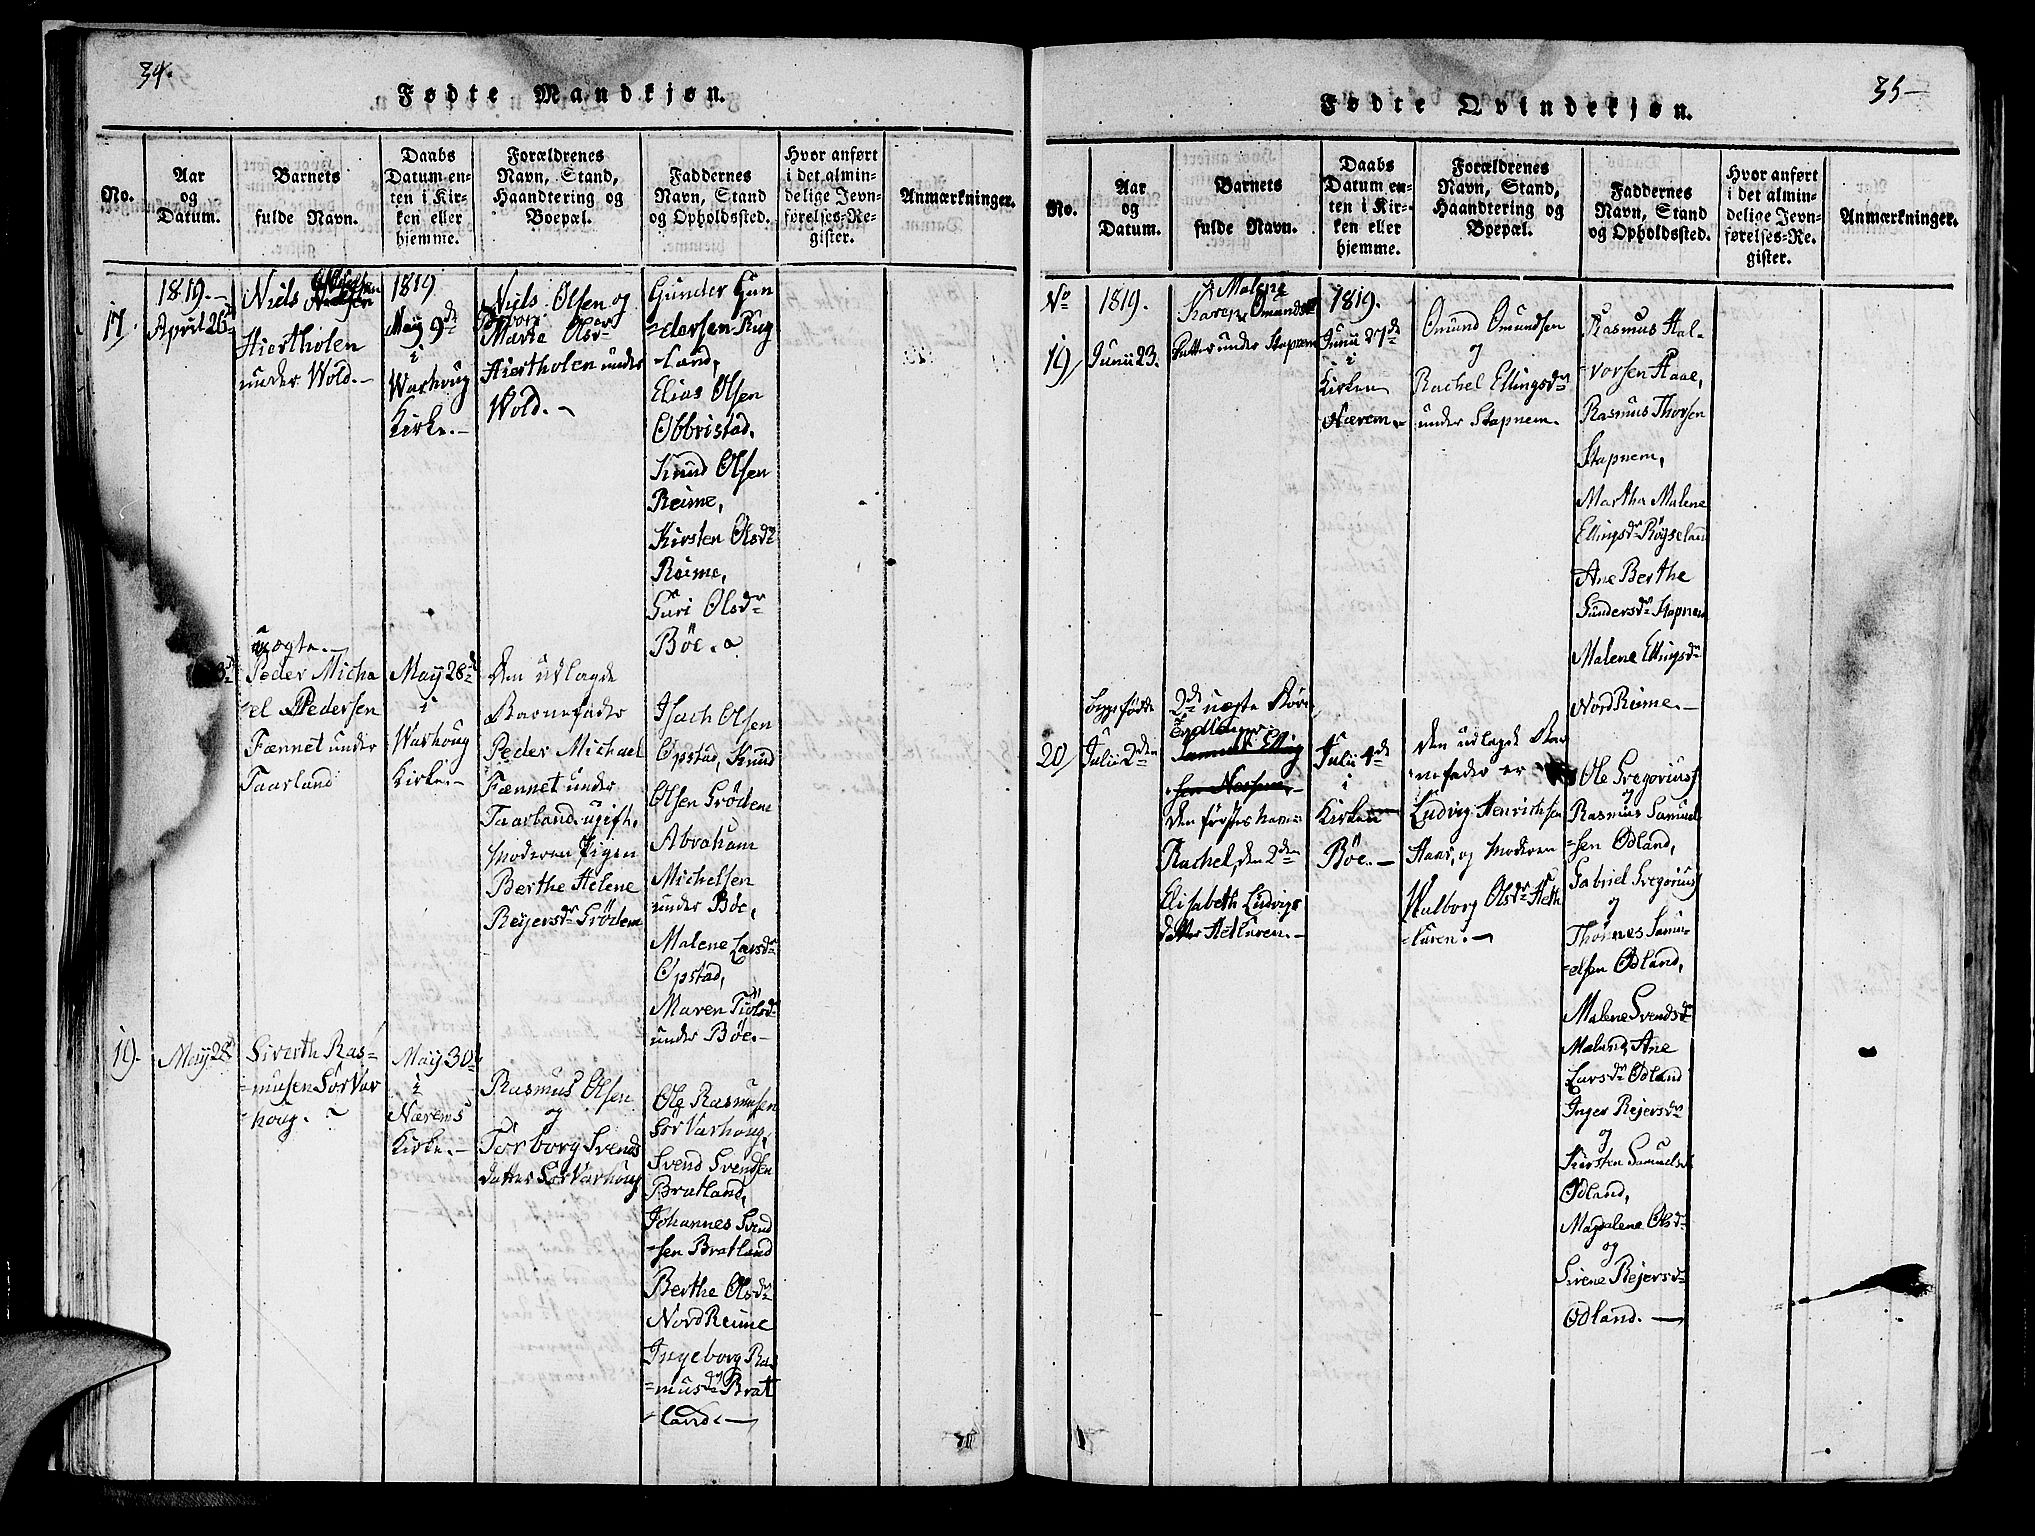 34.
Fødte Mandkjøn.
No.
Aar
og
Datum.
Barnets
fulde Navn.
Daabs
Datum en-
ten i Kir-
ken eller
hjemme.
Forældrenes
Navn, Stand,
Haandtering og
Boepæl.
Faddernes
Navn, Stand
og Opholdssted.
Hvor anført
i det almin-
delige Jevn-
førelses-Re-
gister.
Anmærkninger.
17.
1819.-
April 26d
Niels
Hiertholen
under Wold.-
1819
May 9de
i
Warhoug
Kirke.-
Niels Olsen og
Marta Olsdr
Hiertholen under
Wold.-
Gunder Gun
=dersen Kug
-land,
Elias Olsen
Obbristad,
Knud Olsen
Reime,
Kirsten Olsdr
Reime,
Guri Olsdr
Böe.
uægte.-
Peder Micha
=el Pedersen
Fænnet under
Taarland
May 28d
i
Warhoug
Kirke.-
Den udlagde
Barnefader
Peder Michael
Fænnet under
Taarland, ugift,
Moderen Pigen
Berthe Helene
Reyersdr Grödem
Isach Olsen
Opstad, Knud
Olsen Grödem
Abraham
Michelsen
under Böe,
Malene Larsdr
Opstad,
Maren Tiölsdr
under Böe.-
19.
May 28d
Siverth Ras=
=musen Sör Var
-houg.
May 30d
i
Nærems
Kirke.-
Rasmus Olsen
og
Torborg Svends
datter Sör Varhoug
Ole Rasmusen
Sör Varhoug,
Svend Svendsen
Bratland,
Johannes Svend
=sen Bratland
Berthe Olsdr
Nord Reime
Ingeborg Ras
=musdr Brat
-land.-
35-
Fødte Qvindekjøn.
No.
Aar
og
Datum.
Barnets
fulde Navn.
Daabs
Datum en-
ten i Kir-
ken eller
hjemme.
Forældrenes
Navn, Stand,
Haandtering og
Boepæl.
Faddernes
Navn, Stand
og Opholdssted.
Hvor anført
i det almin-
delige Jevn-
førelses-Re-
gister.
Anmærkninger.
No
19/
1819.
Junii 23.
Malene
Karen Omunds
datter under Stapnem
1819.
Junii 27de
i
Kirken
Nærem.-
Omund Omundsen
og
Rachel Ellingsdr
under Stapnem.
Rasmus Hal-
=vorsen Haae,
Rasmus Thorsen
Stapnem,
Martha Malene
Ellingsdr Röyseland
Ane Berthe
Gundersdr Stapnem
Malene Ellingsdr
Nord Reime.-
20/
begge födte
Julii 2den
2de uægte Börn
Tvillinger
den förstes Navn
Rachel, den 2den
Elisabeth Ludvigs
datter Hetluren.-
Julii 4de
i
Kirken
Böe.-
Den udlagde Bar
=nefader er
Ludvig Henrichsen
Haar, og Moderen
Walborg Olsdr Heth
-luren.-
Ole Gregoriuss
og
Rasmus Samuel
=sen Ödland,
Gabriel Gregoriuss
og
Thönnes Samu-
=elsen Ödland,
Malene Svendsdr
Meland, Ane
Larsdr Ödland
Inger Rejersdr
og
Kirsten Samuelsd
Ödland,
Magdalene Olsdr
og
Sirene Rejersdr
Ödland.-